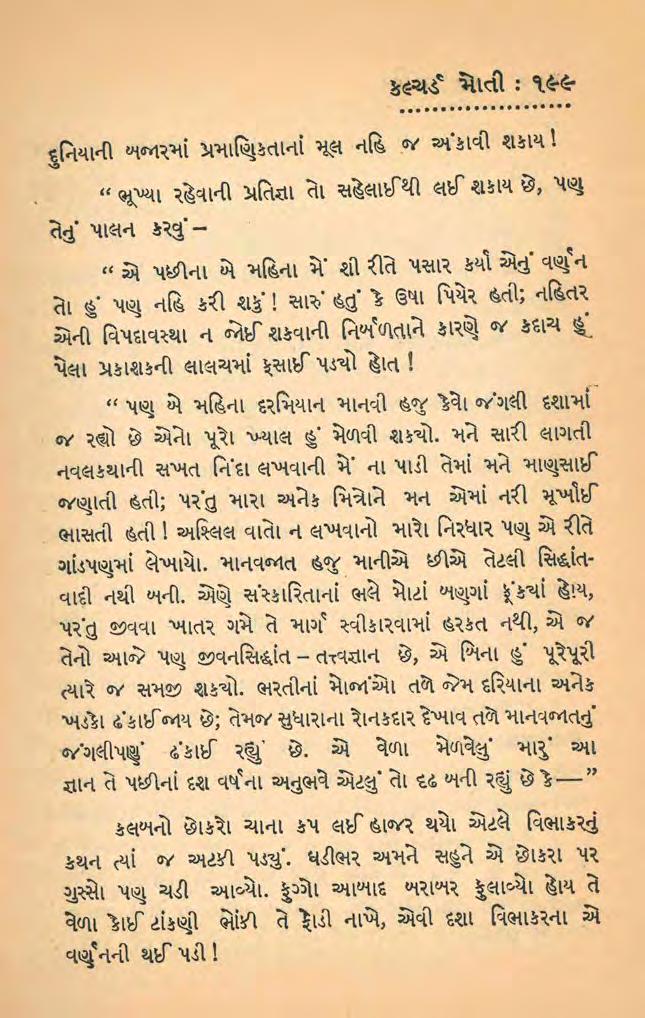 કલ્ચર્ડ મોતી : ૧૯૯
દુનિયાની બજારમાં પ્રમાણિકતાનાં મૂલ નહિ જ અંકાવી શકાય !
“ ભૂખ્યા રહેવાની પ્રતિજ્ઞા તો સહેલાઈથી લઈ શકાય છે, પણ
તેનું પાલન કરવું –
“ એ પછીના બે મહિના મેં શી રીતે પસાર કર્યા એનું વર્ણન
તો હું પણ નહિ કરી શકું ! સારું હતું કે ઉષા પિયેર હતી; નહિતર
એની વિપદાવસ્થા ન જોઈ શકવાની નિર્બળતાને કારણે જ કદાચ હું
પેલા પ્રકાશકની લાલચમાં ફસાઈ પડ્યો હોત !
“ પણ બે મહિના દરમિયાન માનવી હજુ કેવો જંગલી દશામાં
જ રહ્યો છે એનો પૂરો ખ્યાલ હું મેળવી શક્યો. મને સારી લાગતી
નવલકથાની સખત નિંદા લખવાની મેં ના પાડી તેમાં મને માણસાઈ
જણાતી હતી; પરંતુ મારા અનેક મિત્રોને મન એમાં નરી મૂર્ખાઈ
ભાસતી હતી ! અશ્લિલ વાતો ન લખવાનો મારો નિરધાર પણ એ રીતે
ગાંડપણમાં લેખાયો. માનવજાત હજુ માનીએ છીએ તેટલી સિદ્ધાંત-
વાદી નથી બની. એણે સંસ્કારિતાનાં ભલે મોટાં બણગાં ફૂંક્યાં હોય,
પરંતુ જીવવા ખાતર ગમે તે માર્ગ સ્વીકારવામાં હરકત નથી, એ જ
તેનો આજે પણ જીવનસિદ્ધાંત – તત્ત્વજ્ઞાન છે, એ બિના હું પૂરેપૂરી
ત્યારે જ સમજી શક્યો. ભરતીનાં મોજાંઓ તળે જેમ દરિયાના અનેક
ખડકો ઢંકાઈ જાય છે; તેમજ સુધારાના રોનકદાર દેખાવ તળે માનવજાતનું
જંગલીપણું ઢંકાઈ રહ્યું છે. એ વેળા મેળવેલું મારું આ
જ્ઞાન તે પછીનાં દશ વર્ષના અનુભવે એટલું તો દૃઢ બની રહ્યું છે કે—”
કલબનો છોકરો ચાના કપ લઈ હાજર થયો એટલે વિભાકરનું
કથન ત્યાં જ અટકી પડ્યું. ઘડીભર અમને સહુને એ છોકરા પર
ગુસ્સો પણ ચડી આવ્યો. ફુગ્ગો આબાદ બરાબર ફુલાવ્યો હોય તે
વેળા કોઈ ટાંકણી ભોંકી તે ફોડી નાખે, એવી દશા વિભાકરના એ
વર્ણનની થઈ પડી !